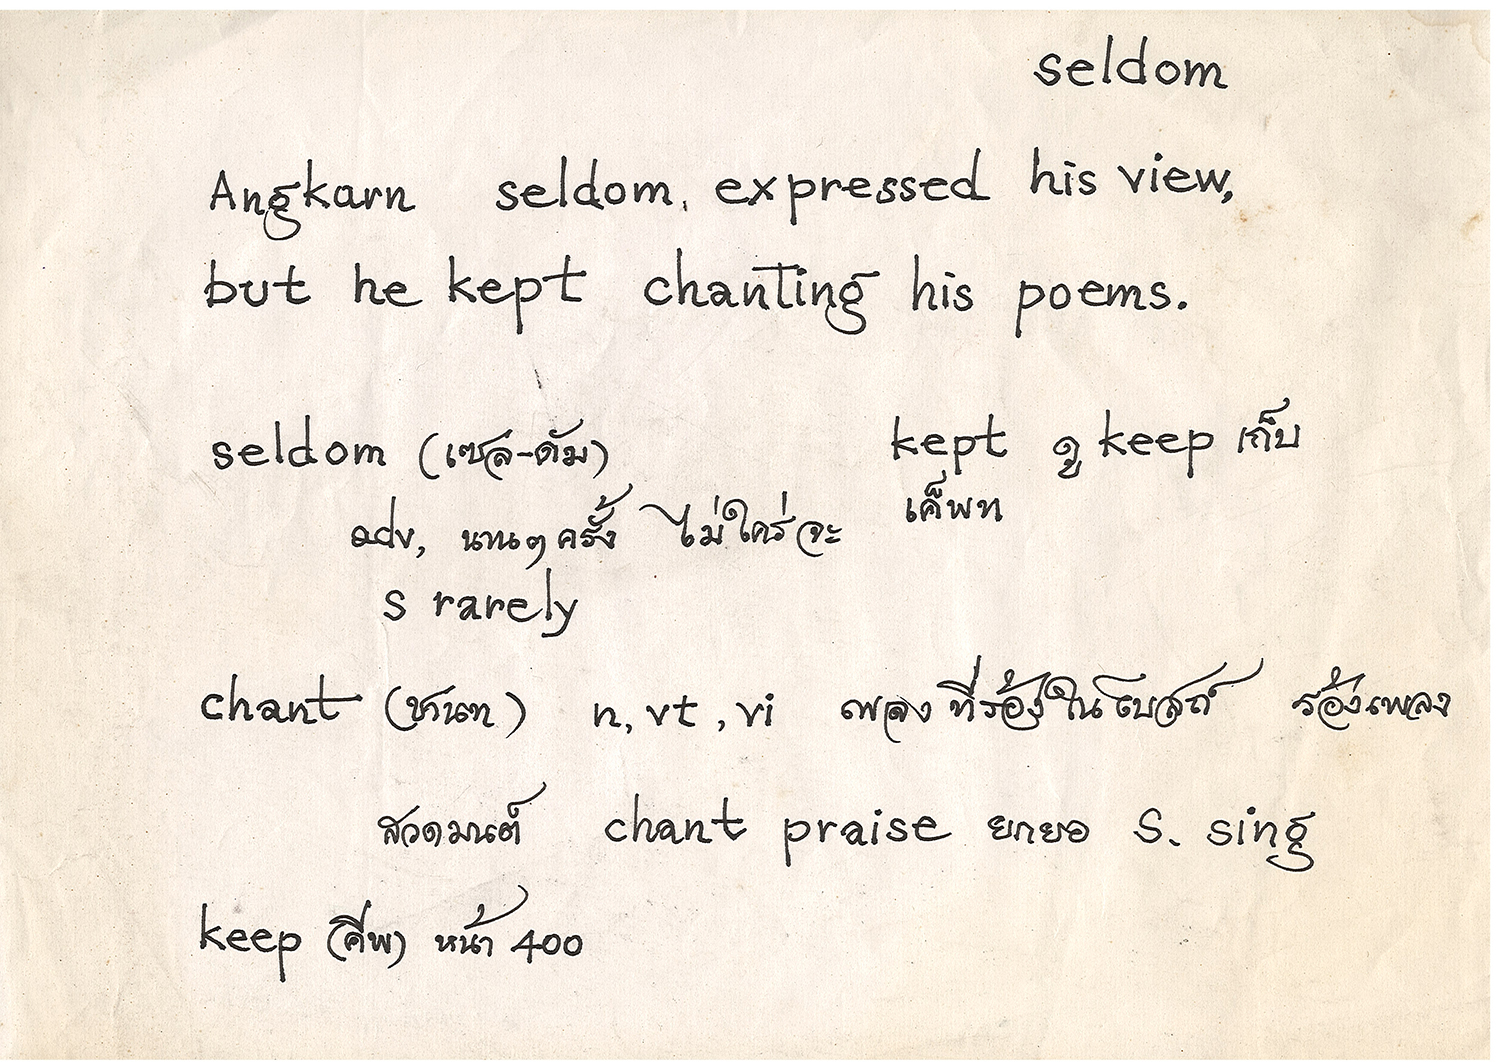 seldom
Angkarn seldom, expressed his view,
but he kept chanting his poems.
seldom (เซล-ดัม) kept ดู keep เก็บ
เค็พท
adv, นานๆครั้ง ไม่ใคร่จะ
s rarely
chant (ชานท) n, vt, vi เพลงที่ร้องในโบสถ์ ร้องเพลง
สวดมนต์ chant praise ยกยอ S. sing
keep (คีพ) หน้า 400